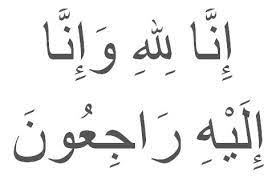 إِنَّا لِلهِ وَإِنَّا
إِلَيْهِ رَاجِعُونَ